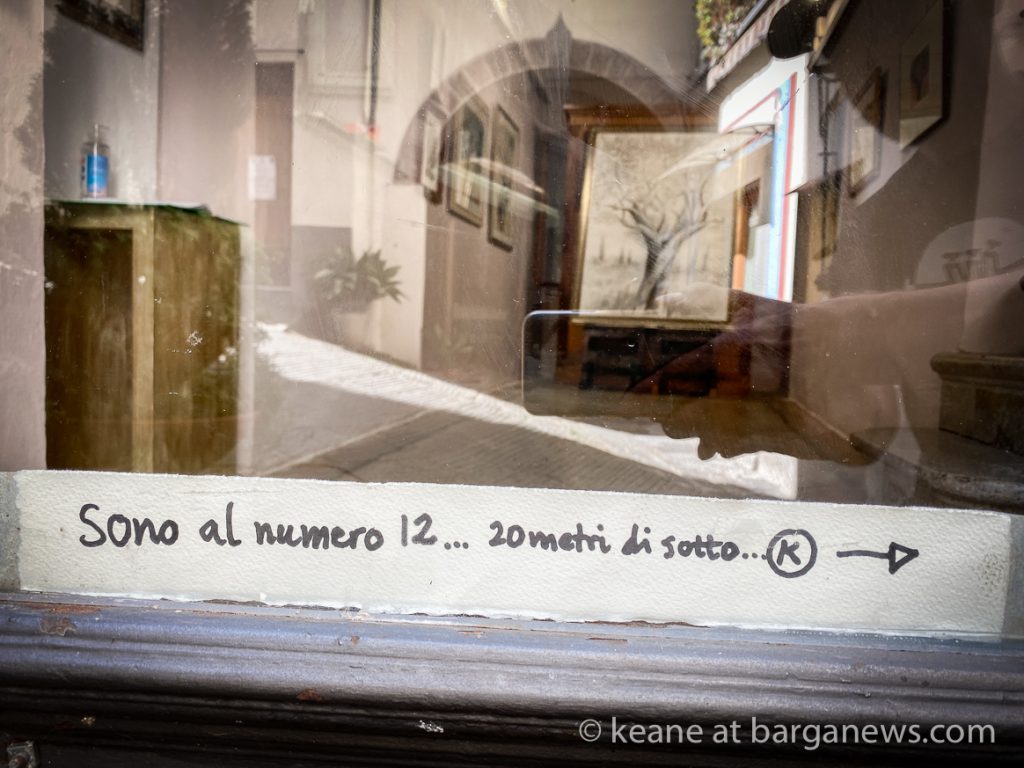 Sono al numero 12... 20 metri di sotto... K
© keane at barganews.com